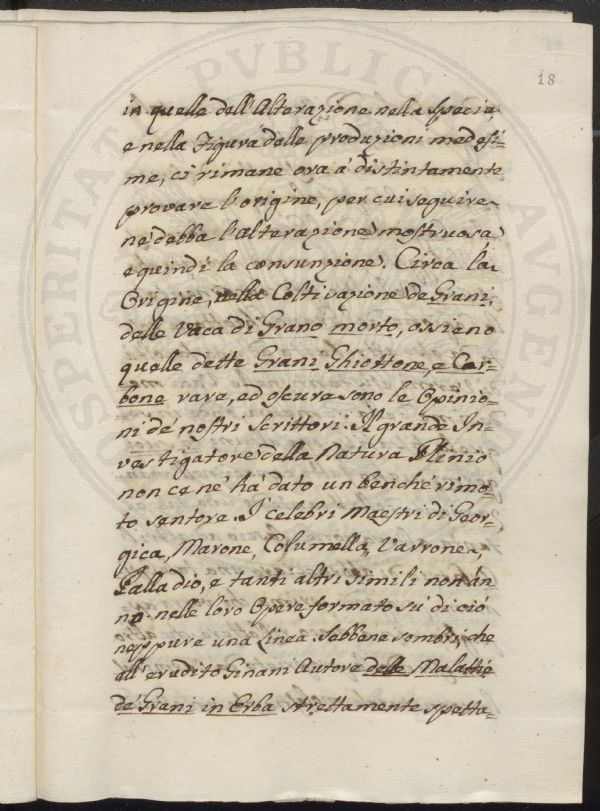 18
in quelle dell'Alterazione nella specie,
e nella Figura dalle produzioni medesi=
me, ci rimane ora á distintamente
provare l'origine, per cui seguire
ne debba l'alterazione mostruosa
e quindi la consunzione. Circa la
Origine, nella Coltivazione de Grani,
delle Vaca di Grano morto, ossieno
quelle dette Grani Ghiottone, e Car=
bone rare, ed oscure sono le Opinio=
ni de' nostri Scrittori. Il grande In=
vestigatore della Natura Plinio
non ce né há dato un benché rimo=
to sentore. I' celebri Maestri di Geor=
gica, Marone, Columella, Varrone,
Palladio, e tanti altri simili non án=
no nelle loro Opere formato sú di ció
neppure una Linea. Sebbene sembri, che
all' erudito Ginani Autore delle Malattie
dé Grani in Erba strettamente spetta=
PUBLICAE
AUGENDAE